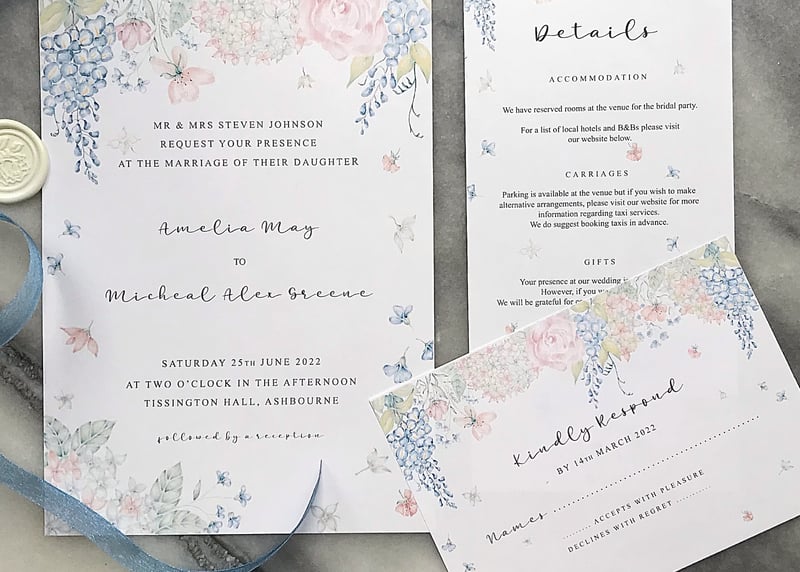 MR & MRS STEVEN JOHNSON
REQUEST YOUR PRESENCE
AT THE MARRIAGE OF THEIR DAUGHTER
Amelia May
TO
Micheal Alex Greene
SATURDAY 25TH JUNE 2022
AT TWO O'CLOCK IN THE AFTERNOON
TISSINGTON HALL, ASHBOURNE
followed by a reception
Details
ACCOMMODATION
We have reserved rooms at the venue for the bridal party.
For a list of local hotels and B&Bs please visit
our website below.
CARRIAGES
Parking is available at the venue but if you wish to make
alternative arrangements, please visit our website for more
information regarding taxi services.
We do suggest booking taxis in advance.
GIFTS
Your presence at our wedding is
However, if you
We will be grateful for
Kindly Respond
BY 14TH MARCH 2022
Names ..............................
........ ACCEPTS WITH PLEASURE
DECLINES WITH REGRET ..........